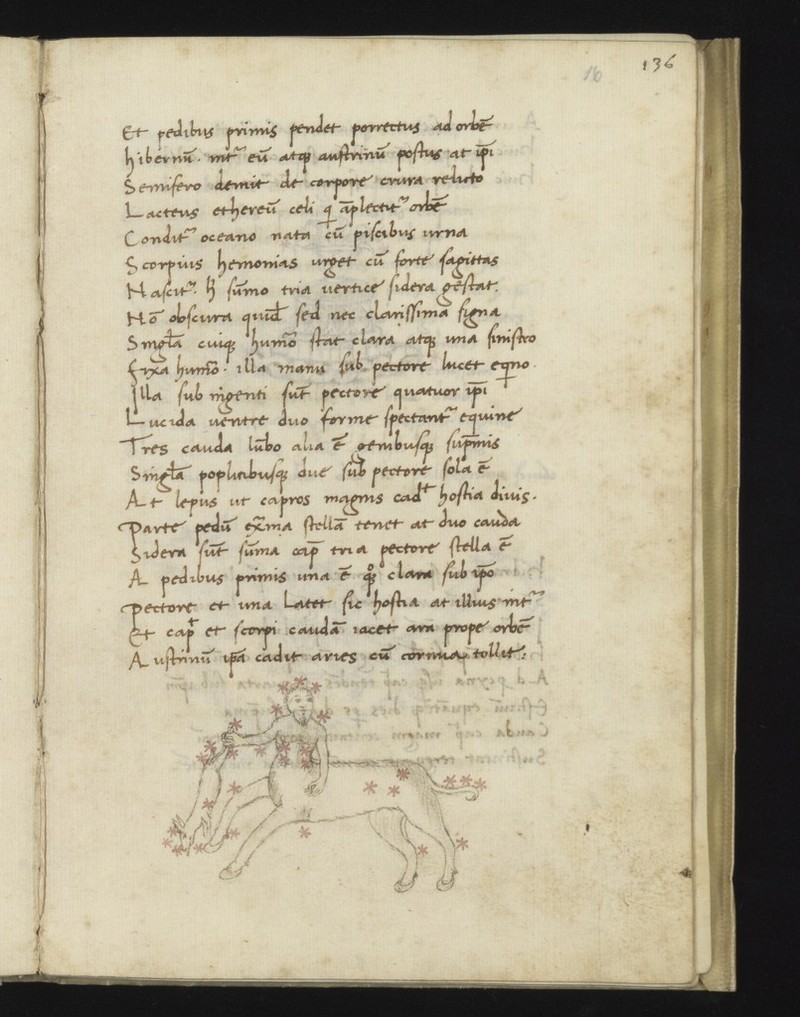 136
16
Et pedibus primis pendet porrectus ad orbē
hibernū. intʳ eū atqꝫ austrinū positus at ip̄i
Semifero demit de corpore crura relicto
Lacteus ethereū celi q̄ āplectitʳ orbē
Conditʳ oceano nata cū piscibus urna
Scorpius hemonias urget cū forte sagittas
Nascitʳ. h̄ sūmo tria vertice sidera gestat.
Nō obscura quid̄ sed nec clarissima signa
Singl̄a cuiqꝫ humo stat clara atqꝫ una sinistro
fixa humo. illa manu sub pectore lucet eqno.
Illa sub ingenti sūt pectore quatuor ip̄i
Lucida ventre duo forme spectantʳ equine
Tres cauda lūbo alia ē genibusqꝫ sup̄mis
Singl̄a poplitibusqꝫ due sub pectore sola ē
At lepus ut capros magnis cadᵗ hostia divis.
Parte pedū exʳma stellā tenet at duo cauda
Sidera sūt sūma cap̄ tria pectore stella ē
A pedibus primis una ē qͦꝫ clara sub ip̄o
Pectore et una latet sic hostia at illius intʳ
Et cap̄ et scorpi caudā iacet ara prope orbē
Austrinū ip̄a cadit aries cū cornua tollit: